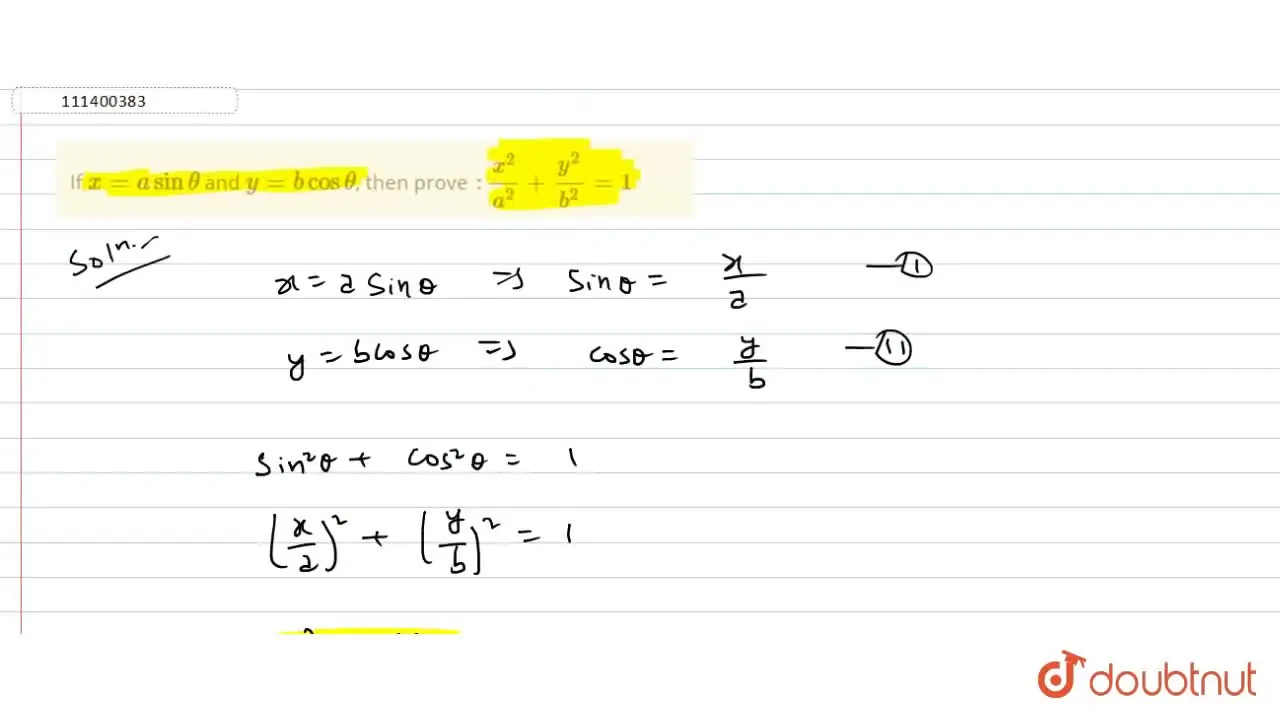 111400383
If x = a sin θ and y = b cos θ, then prove : x²/a² + y²/b² = 1
Soln.
x = a sinθ ⇒ sinθ = x/a —①
y = b cosθ ⇒ cosθ = y/b —⑪
sin²θ + cos²θ = 1
(x/a)² + (y/b)² = 1
doubtnut